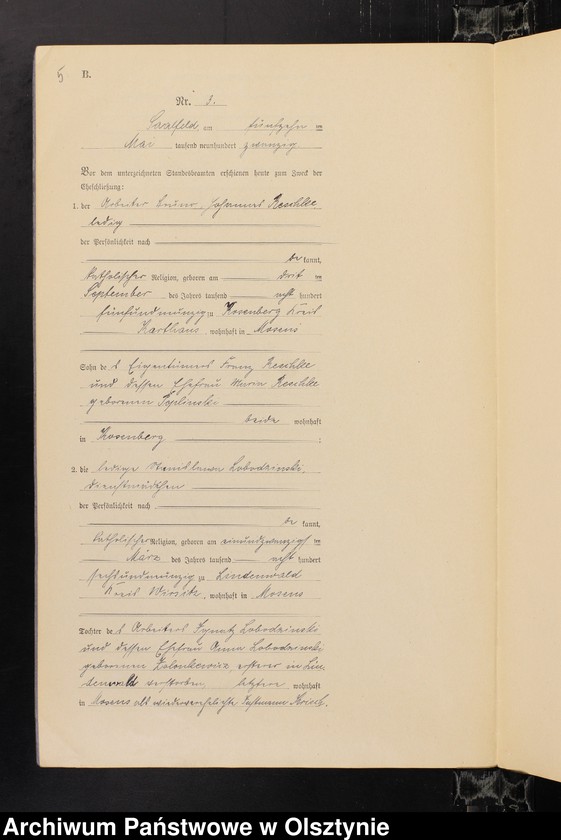 5 B.
Nr. 5.
Saalfeld am fünfzehn ten
Mai tausend neunhundert zwanzig
Vor dem unterzeichneten Standesbeamten erschienen heute zum Zweck der
Eheschließung:
1. der Arbeiter Bruno Johannes Reschke
ledig
der Persönlichkeit nach
be kannt,
katholischer Religion, geboren am ten
September des Jahres tausend acht hundert
fünfundneunzig zu Rosenberg Kreis
Karthaus, wohnhaft in Mosens
Sohn des Eigentümers Franz Reschke
und dessen Ehefrau Maria Reschke
geborenen
beide wohnhaft
in Rosenberg ;
2. die ledige Stanislawa Lobodzinski,
Dienstmädchen
der Persönlichkeit nach
be kannt,
katholischer Religion, geboren am einundzwanzigsten
März des Jahres tausend acht hundert
sechsundneunzig zu Lindenwald
Kreis Wirsitz, wohnhaft in Mosens
Tochter des Arbeiters Ignatz Lobodzinski
und dessen Ehefrau Anna Lobodzinski
geborenen ersterer in Lin-
denwald verstorben, letztere wohnhaft
in Mosens als wiederverehelichte
Archiwum Państwowe w Olsztynie